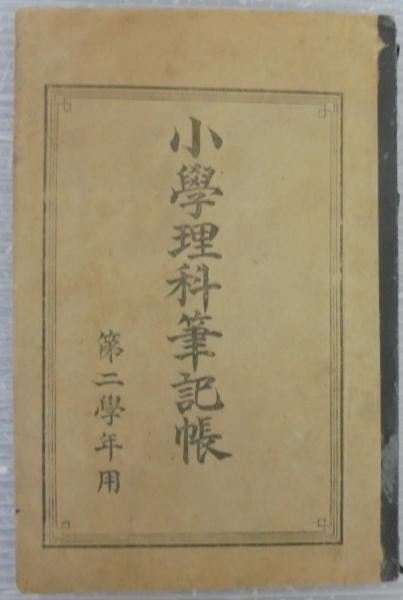 小學理科筆記帳
第二學年用